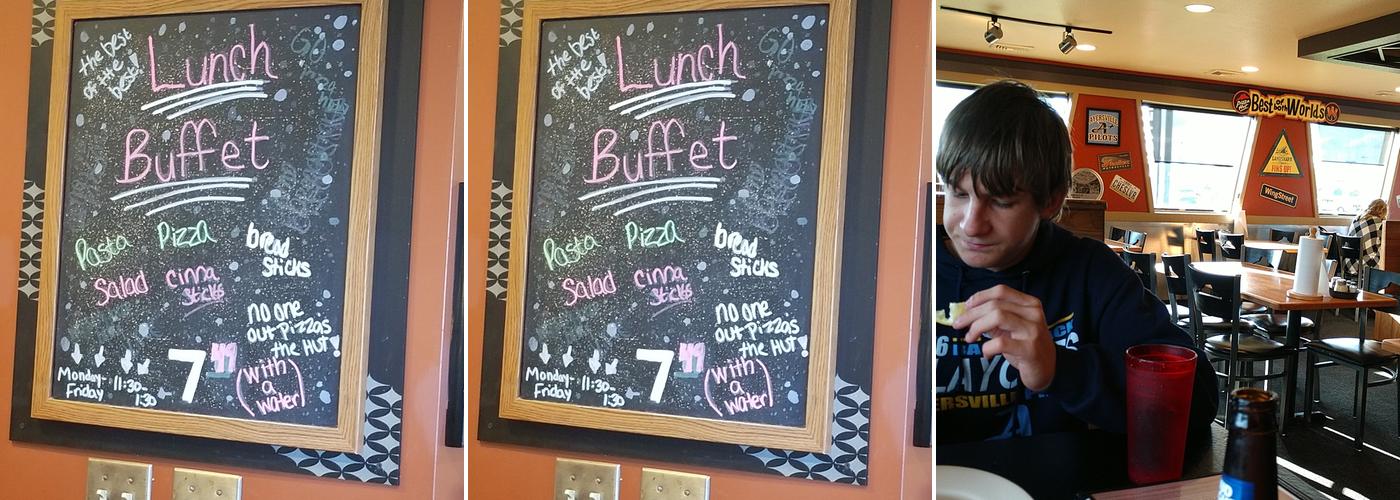 the best
of the
best!
Lunch
Buffet
Pasta Pizza bread
sticks
Salad cinna
sticks
no one
out pizzas
the HUT!
Monday- 11:30-
Friday 1:30
7 49
(with
a
water)
the best
of the
best!
Lunch
Buffet
Pasta Pizza bread
sticks
Salad cinna
sticks
no one
out pizzas
the HUT!
Monday- 11:30-
Friday 1:30
7 49
(with
a
water)
Best of both Worlds
AYERSVILLE
PILOTS
FINS UP!
WingStreet